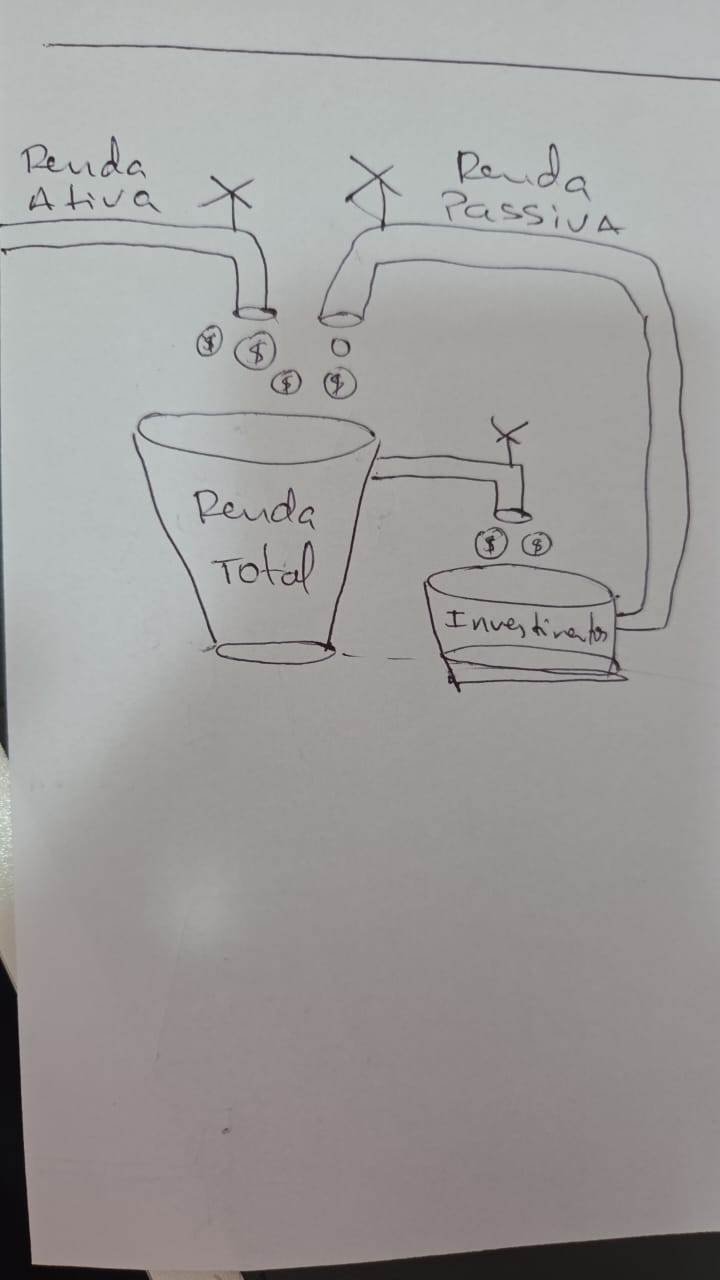 Renda
Ativa
Renda
Passiva
$ $
$ $
Renda
Total
$ $
Investimentos